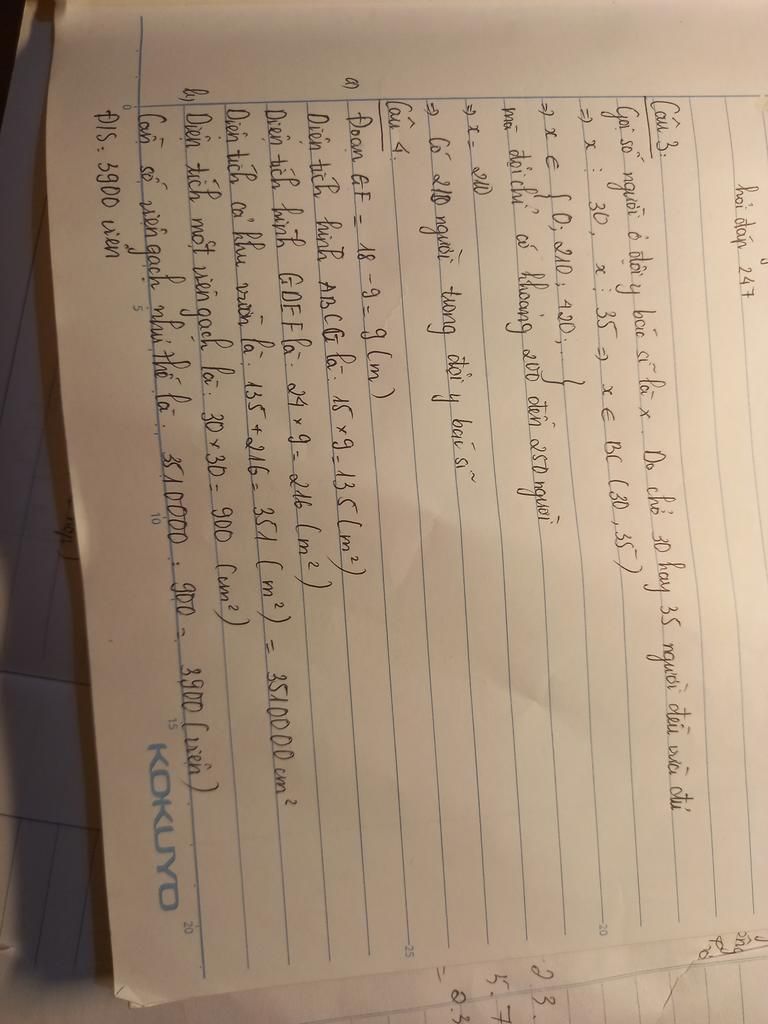 hỏi đáp 247
Câu 3:
Gọi số người ở đội y bác sĩ là x. Do chở 30 hay 35 người đều vừa đủ
=> x ⋮ 30, x ⋮ 35 => x ∈ BC (30, 35)
=> x ∈ {0; 210; 420; .. }
mà đội chỉ có khoảng 200 đến 250 người
=> x = 210
=> Có 210 người trong đội y bác sĩ
Câu 4.
a) Đoạn GF = 18 - 9 = 9 (m)
Diện tích hình ABCG là: 15 x 9 = 135 (m²)
Diện tích hình GDEF là: 24 x 9 = 216 (m²)
Diện tích cả khu vườn là: 135 + 216 = 351 (m²) = 3510000 cm²
b) Diện tích một viên gạch là: 30 x 30 = 900 (cm²)
Cần số viên gạch như thế là: 3510000 : 900 = 3900 (viên)
Đ/S: 3900 viên
0 5 10 15 20
KOKUYO
20
25
2.3.
5.7
= 2.3